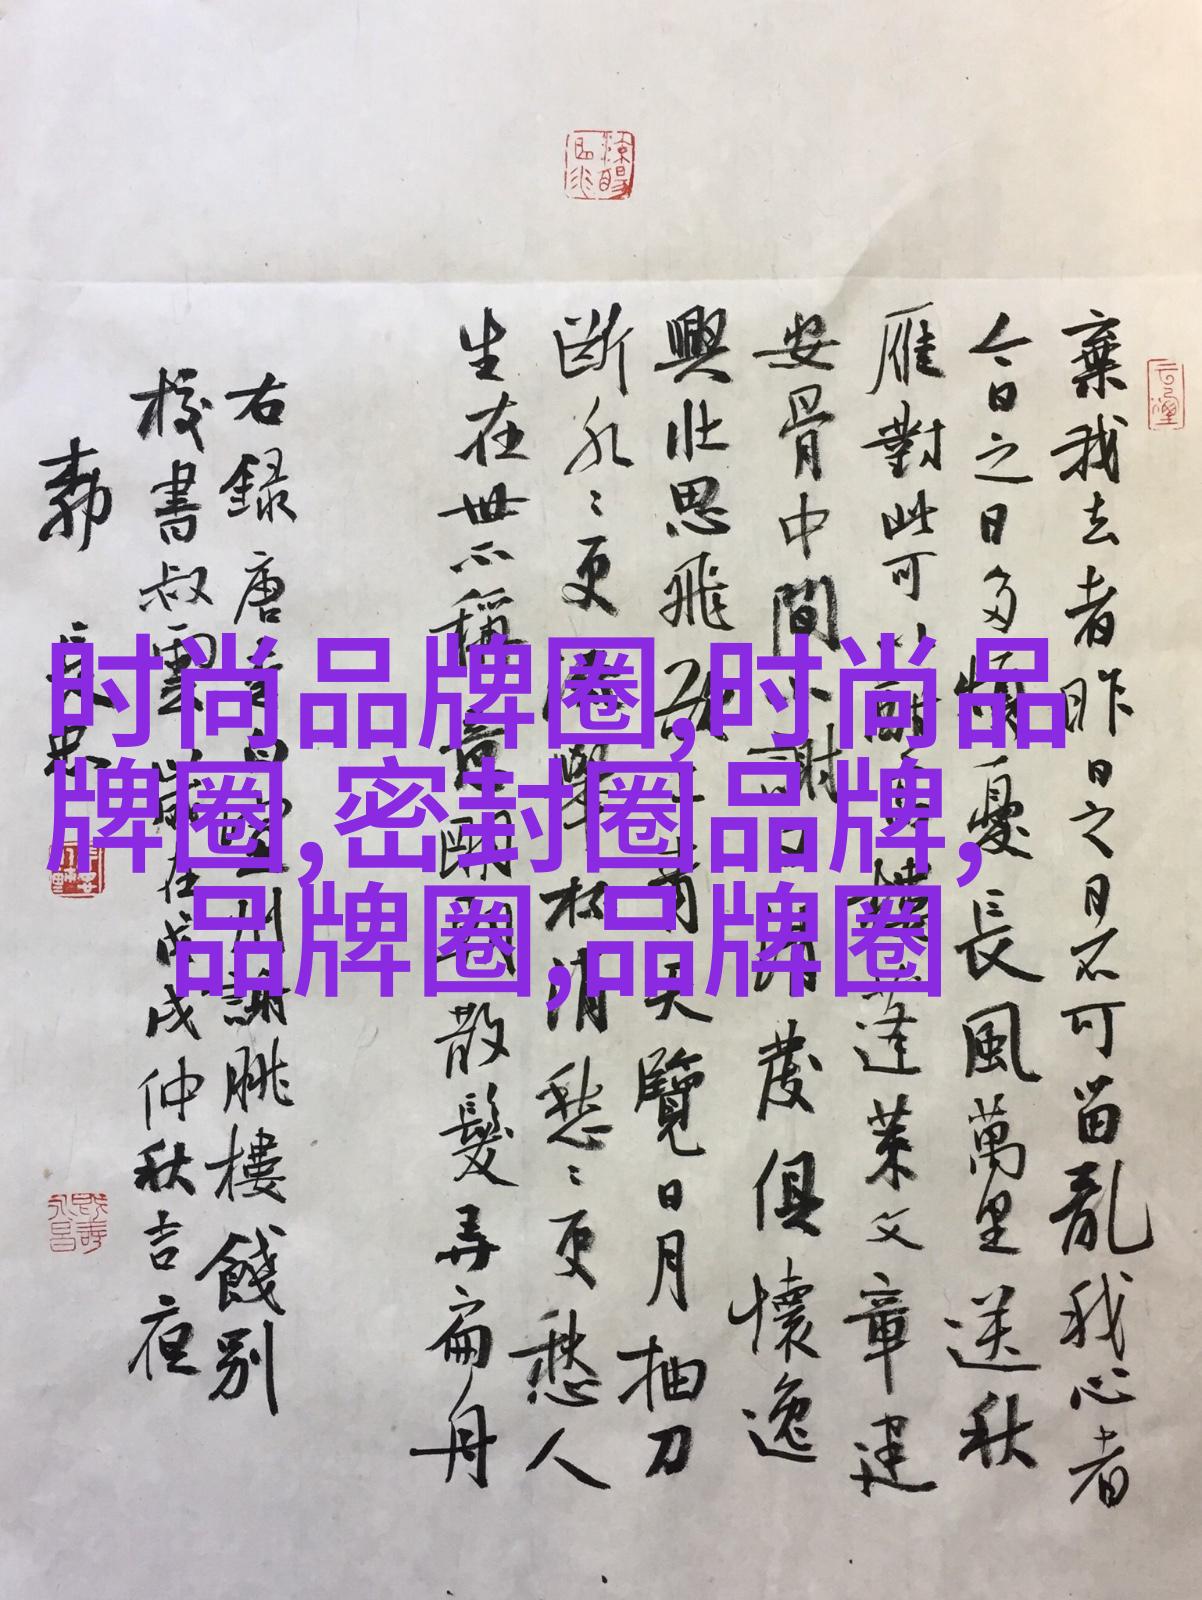 棄我去者昨日之日不可留亂我心者
今日之日多煩憂長風萬里送秋
雁對此可以酣高樓蓬萊文章建
安骨中間小謝又清發俱懷逸
興壯思飛欲上青天覽日月抽刀
斷水〻更流舉杯消愁〻更愁人
生在世不稱意明朝散髮弄扁舟
右錄唐李白宣州謝朓樓餞別
校書叔雲歲在戊戌仲秋吉夜
時尚品牌圈,时尚品
牌圈,密封圈品牌,
品牌圈,品牌圈